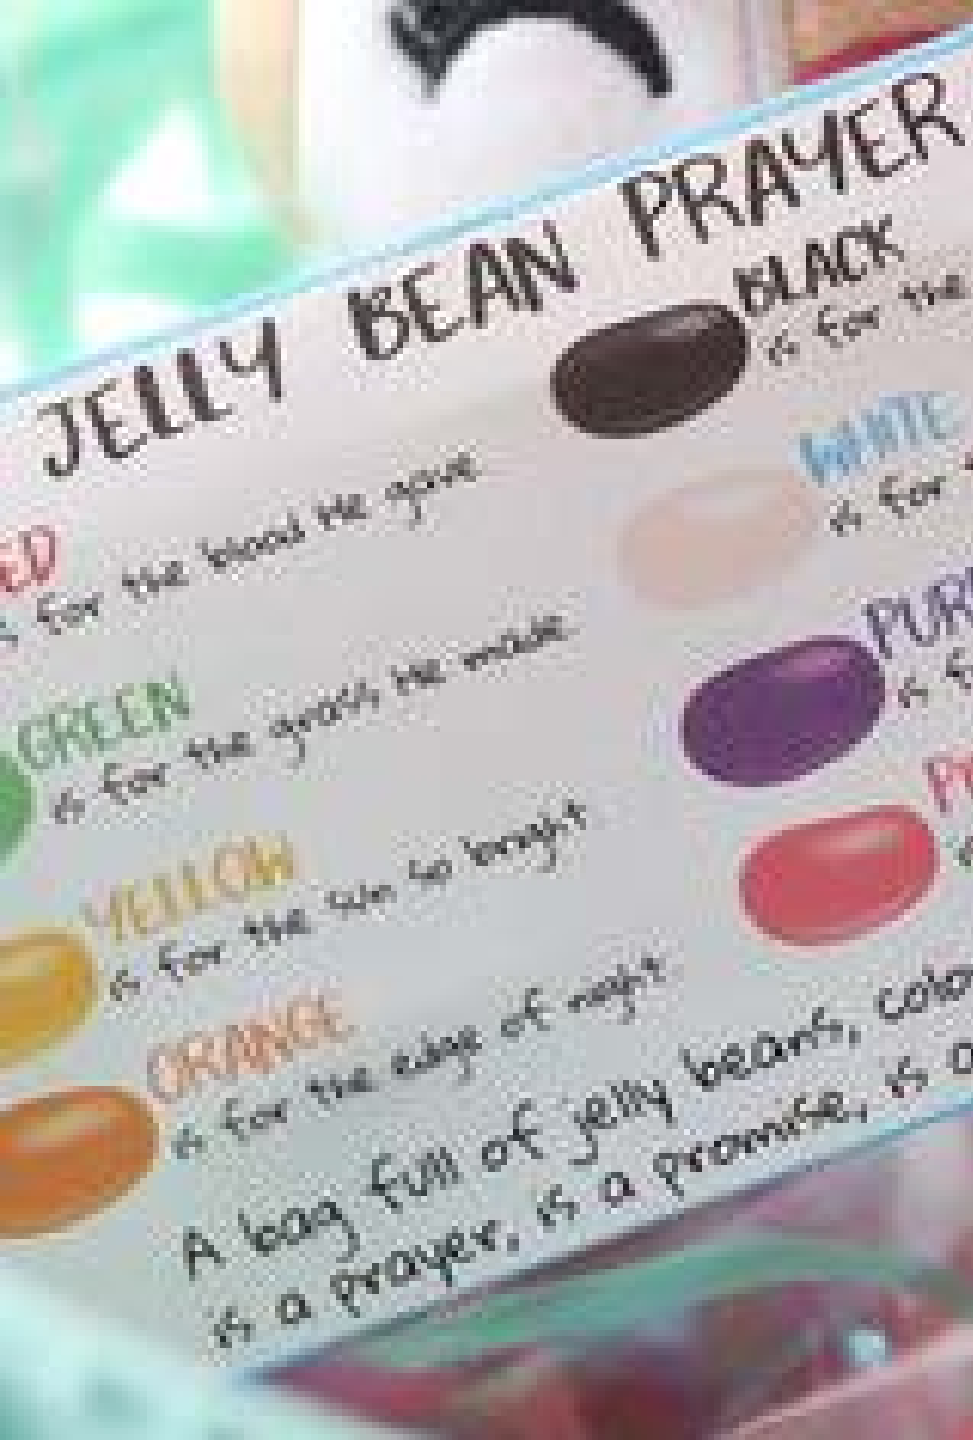 JELLY BEAN PRAYER
ED
is for the blood He gave
GREEN
is for the grass He made
YELLOW
is for the sun so bright
ORANGE
is for the edge of night
BLACK
is for the
WHITE
is for
PUR
is f
A bag full of jelly beans, colo
is a prayer, is a promise, is a